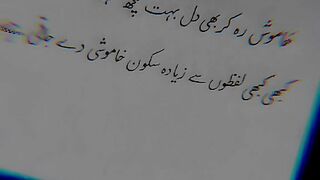 خاموش رہ کر بھی دل بہت کچھ
کبھی کبھی لفظوں سے زیادہ سکون خاموشی دے جاتی